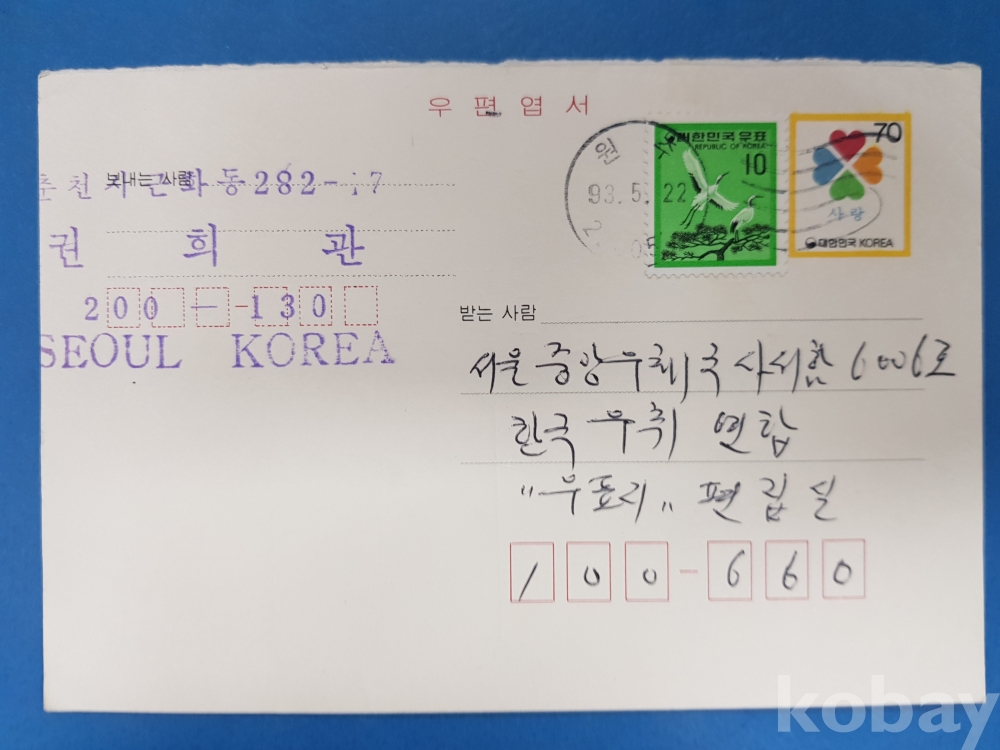 우편엽서
대한민국 우표
REPUBLIC OF KOREA
10
70
사랑
대한민국 KOREA
93. 5. 22
보내는 사람
춘천시 근화동 282-17
권 희 관
200-130
SEOUL KOREA
받는 사람
서울 중앙우체국 사서함 6006호
한국 우취 연합
"우표리" 편집실
100-660
kobay